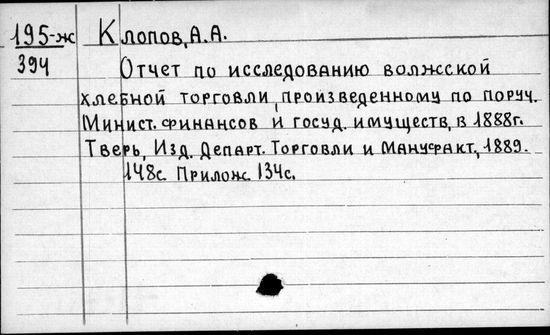 195-ж Клопов, А.А.
394 Отчет по исследованию волжской
хлебной торговли, произведенному по поруч.
Минист. финансов и госуд. имуществ, в 1888г.
Тверь, Изд. Департ. Торговли и Мануфакт., 1889.
148с. Прилож. 134с.